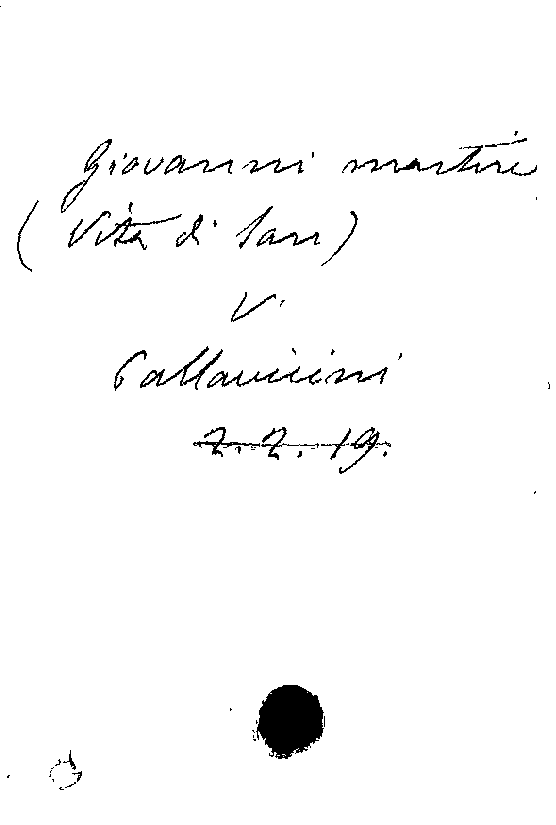 Giovanni martire
(Vita di San)
V.
Pallavicini
Z. 2. 19.